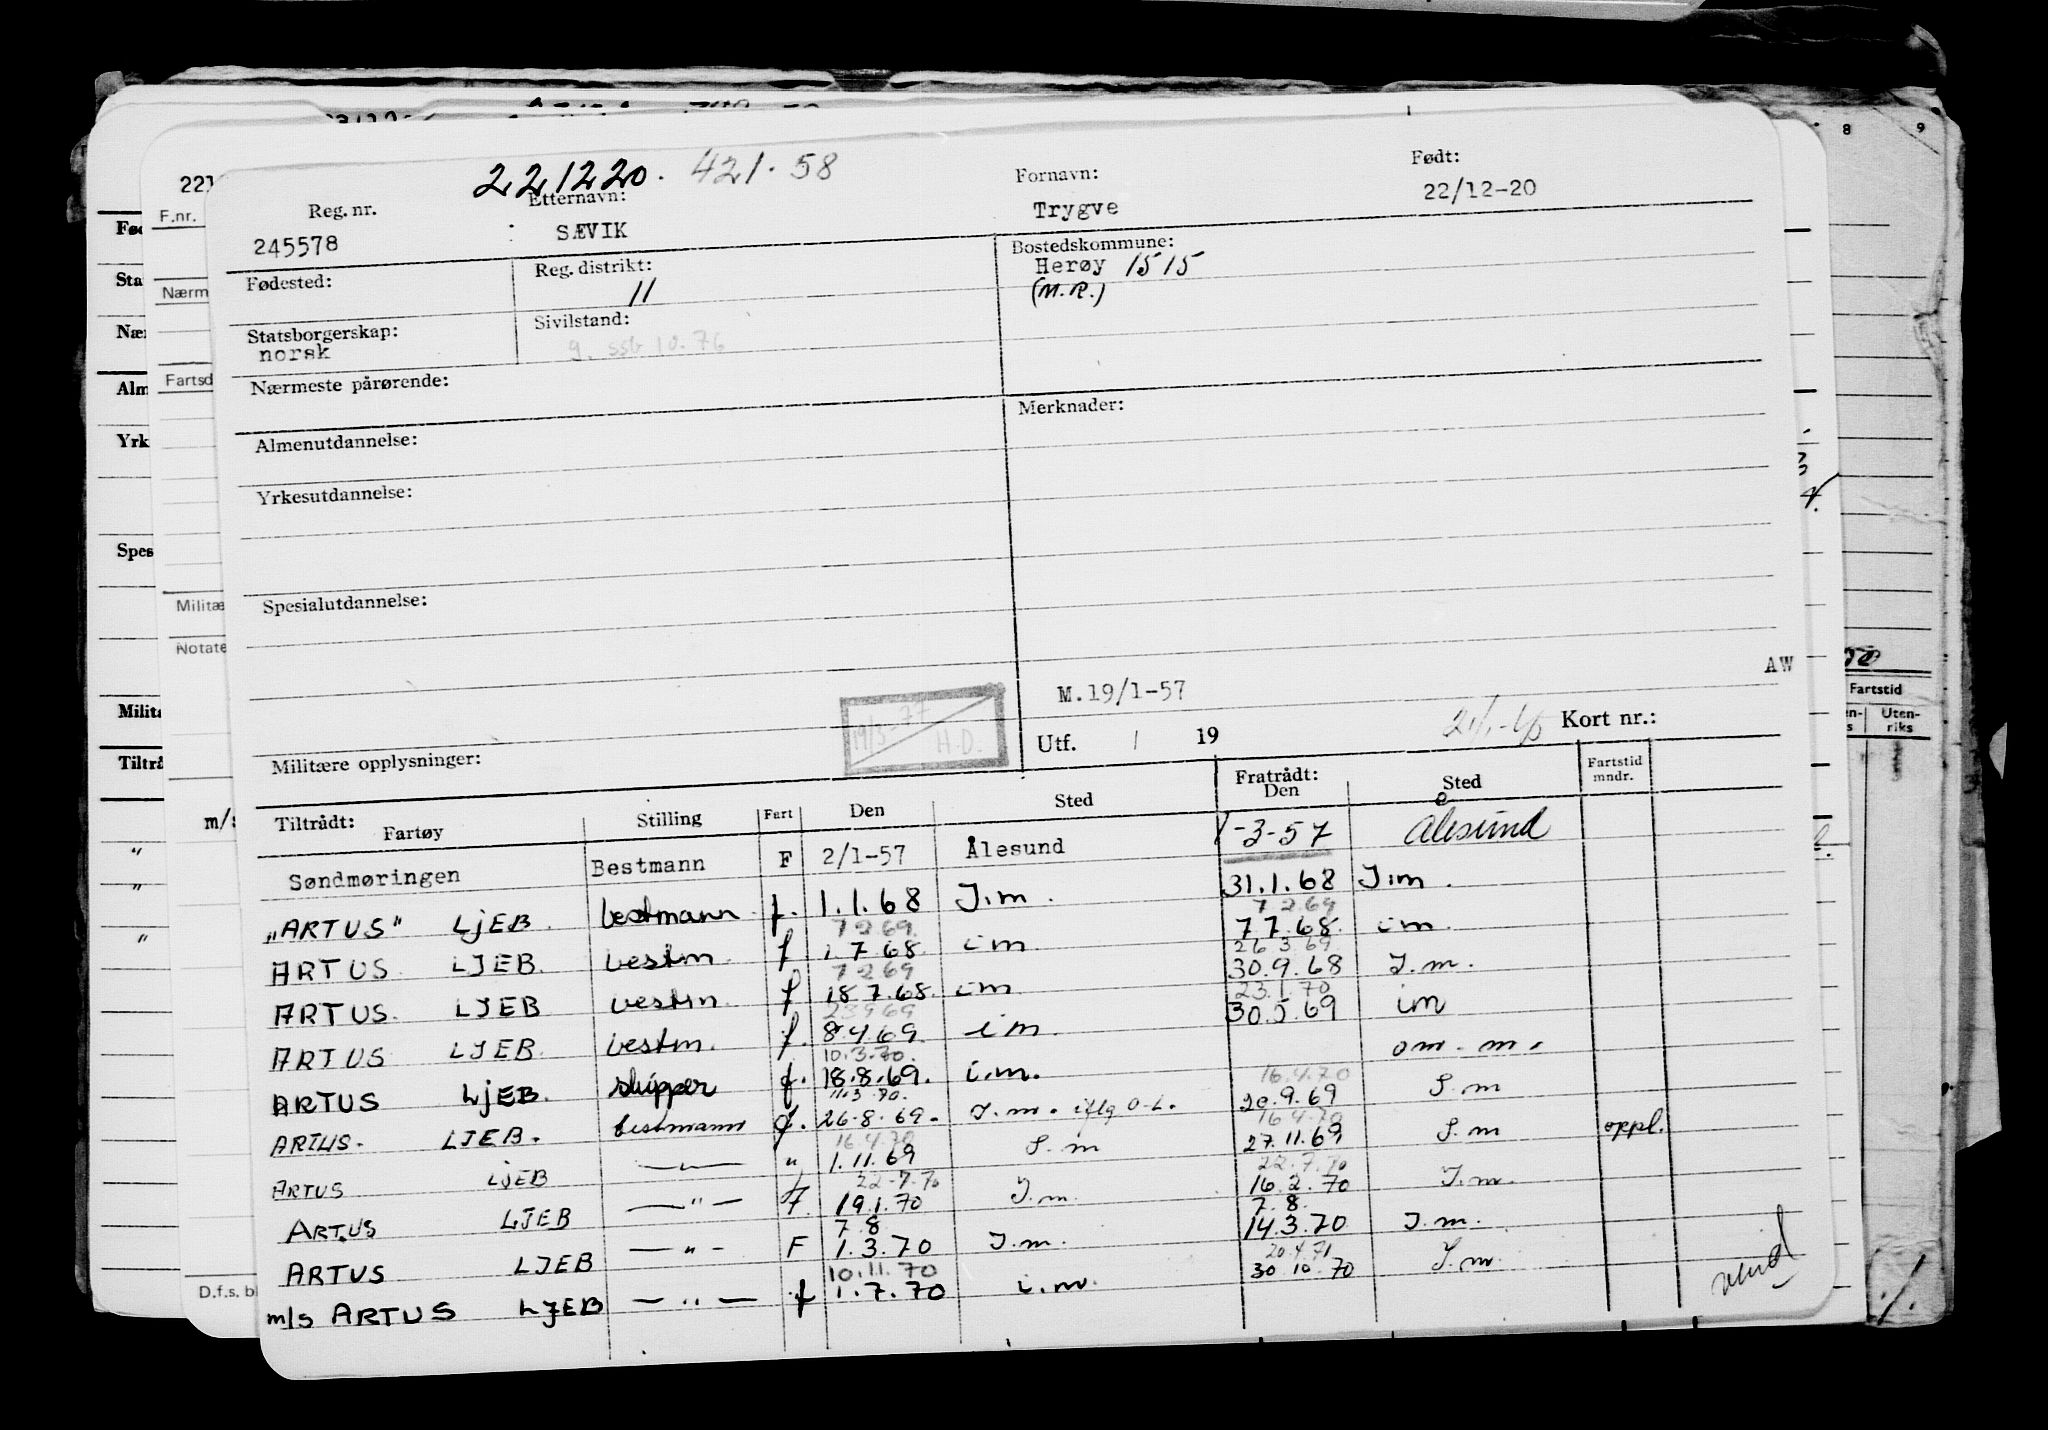 221220. 421.58
Reg. nr. Etternavn: Fornavn: Født:
245578 SÆVIK Trygve 22/12-20
Fødested: Reg. distrikt: Bostedskommune:
11 Herøy 1515
(M.R.)
Statsborgerskap: Sivilstand:
norsk g. ssb 10.76
Nærmeste pårørende:
Almenutdannelse: Merknader:
Yrkesutdannelse:
Spesialutdannelse:
AW
M.19/1-57
19/5-77 H.D.
Militære opplysninger: Utf. / 19 Kort nr.:
Tiltrådt: Fartøy Stilling Fart Den Sted Fratrådt: Den Sted Fartstid mndr.
Søndmøringen Bestmann F 2/1-57 Ålesund 1-3-57 Ålesund
„ARTUS" LJEB. bestmann f. 1.1.68 I.m. 31.1.68 I.m.
7 2 69. 7 2 69
ARTUS LJEB. bestm. f 1.7.68. i m 7.7.68. i m.
7 2 69 26 3 69.
ARTUS. LJEB bestm. f 18 7.68. i m 30.9.68 I.m.
23.1.70
ARTUS LJEB. bestm. f. 8.4.69. i m. 30.5.69 i m
10.3.70.
ARTUS LJEB. skipper f. 18.8.69. i.m. om. m.
11.3.70. 16.4.70
ARTUS. LJEB. bestmann f. 26.8.69. I.m. iflg O.L. 20.9.69 I.m
16.4.70 16.4.70
ARTUS LJEB — " — " 1.11.69 I.m 27.11.69 I.m oppl.
22-7-70 22.7.70
ARTUS LJEB — " — F. 19.1.70 I.m. 16.2.70 I.m.
7 8 7.8.
ARTUS LJEB — " - F 1.3.70 I.m. 14.3.70 I.m.
10.11.70 20.4.71
m/s ARTUS LJEB — " — f 1.7.70 i.m. 30 10 70 I.m.
vend
F.nr.
Nærm
Fartsd
Militæ
Notate
m/s
D.f.s. bl
Fød
Sta
Nær
Alm
Yrk
Spes
Milita
Tiltrå
8 9
Fartstid
Uten-
riks